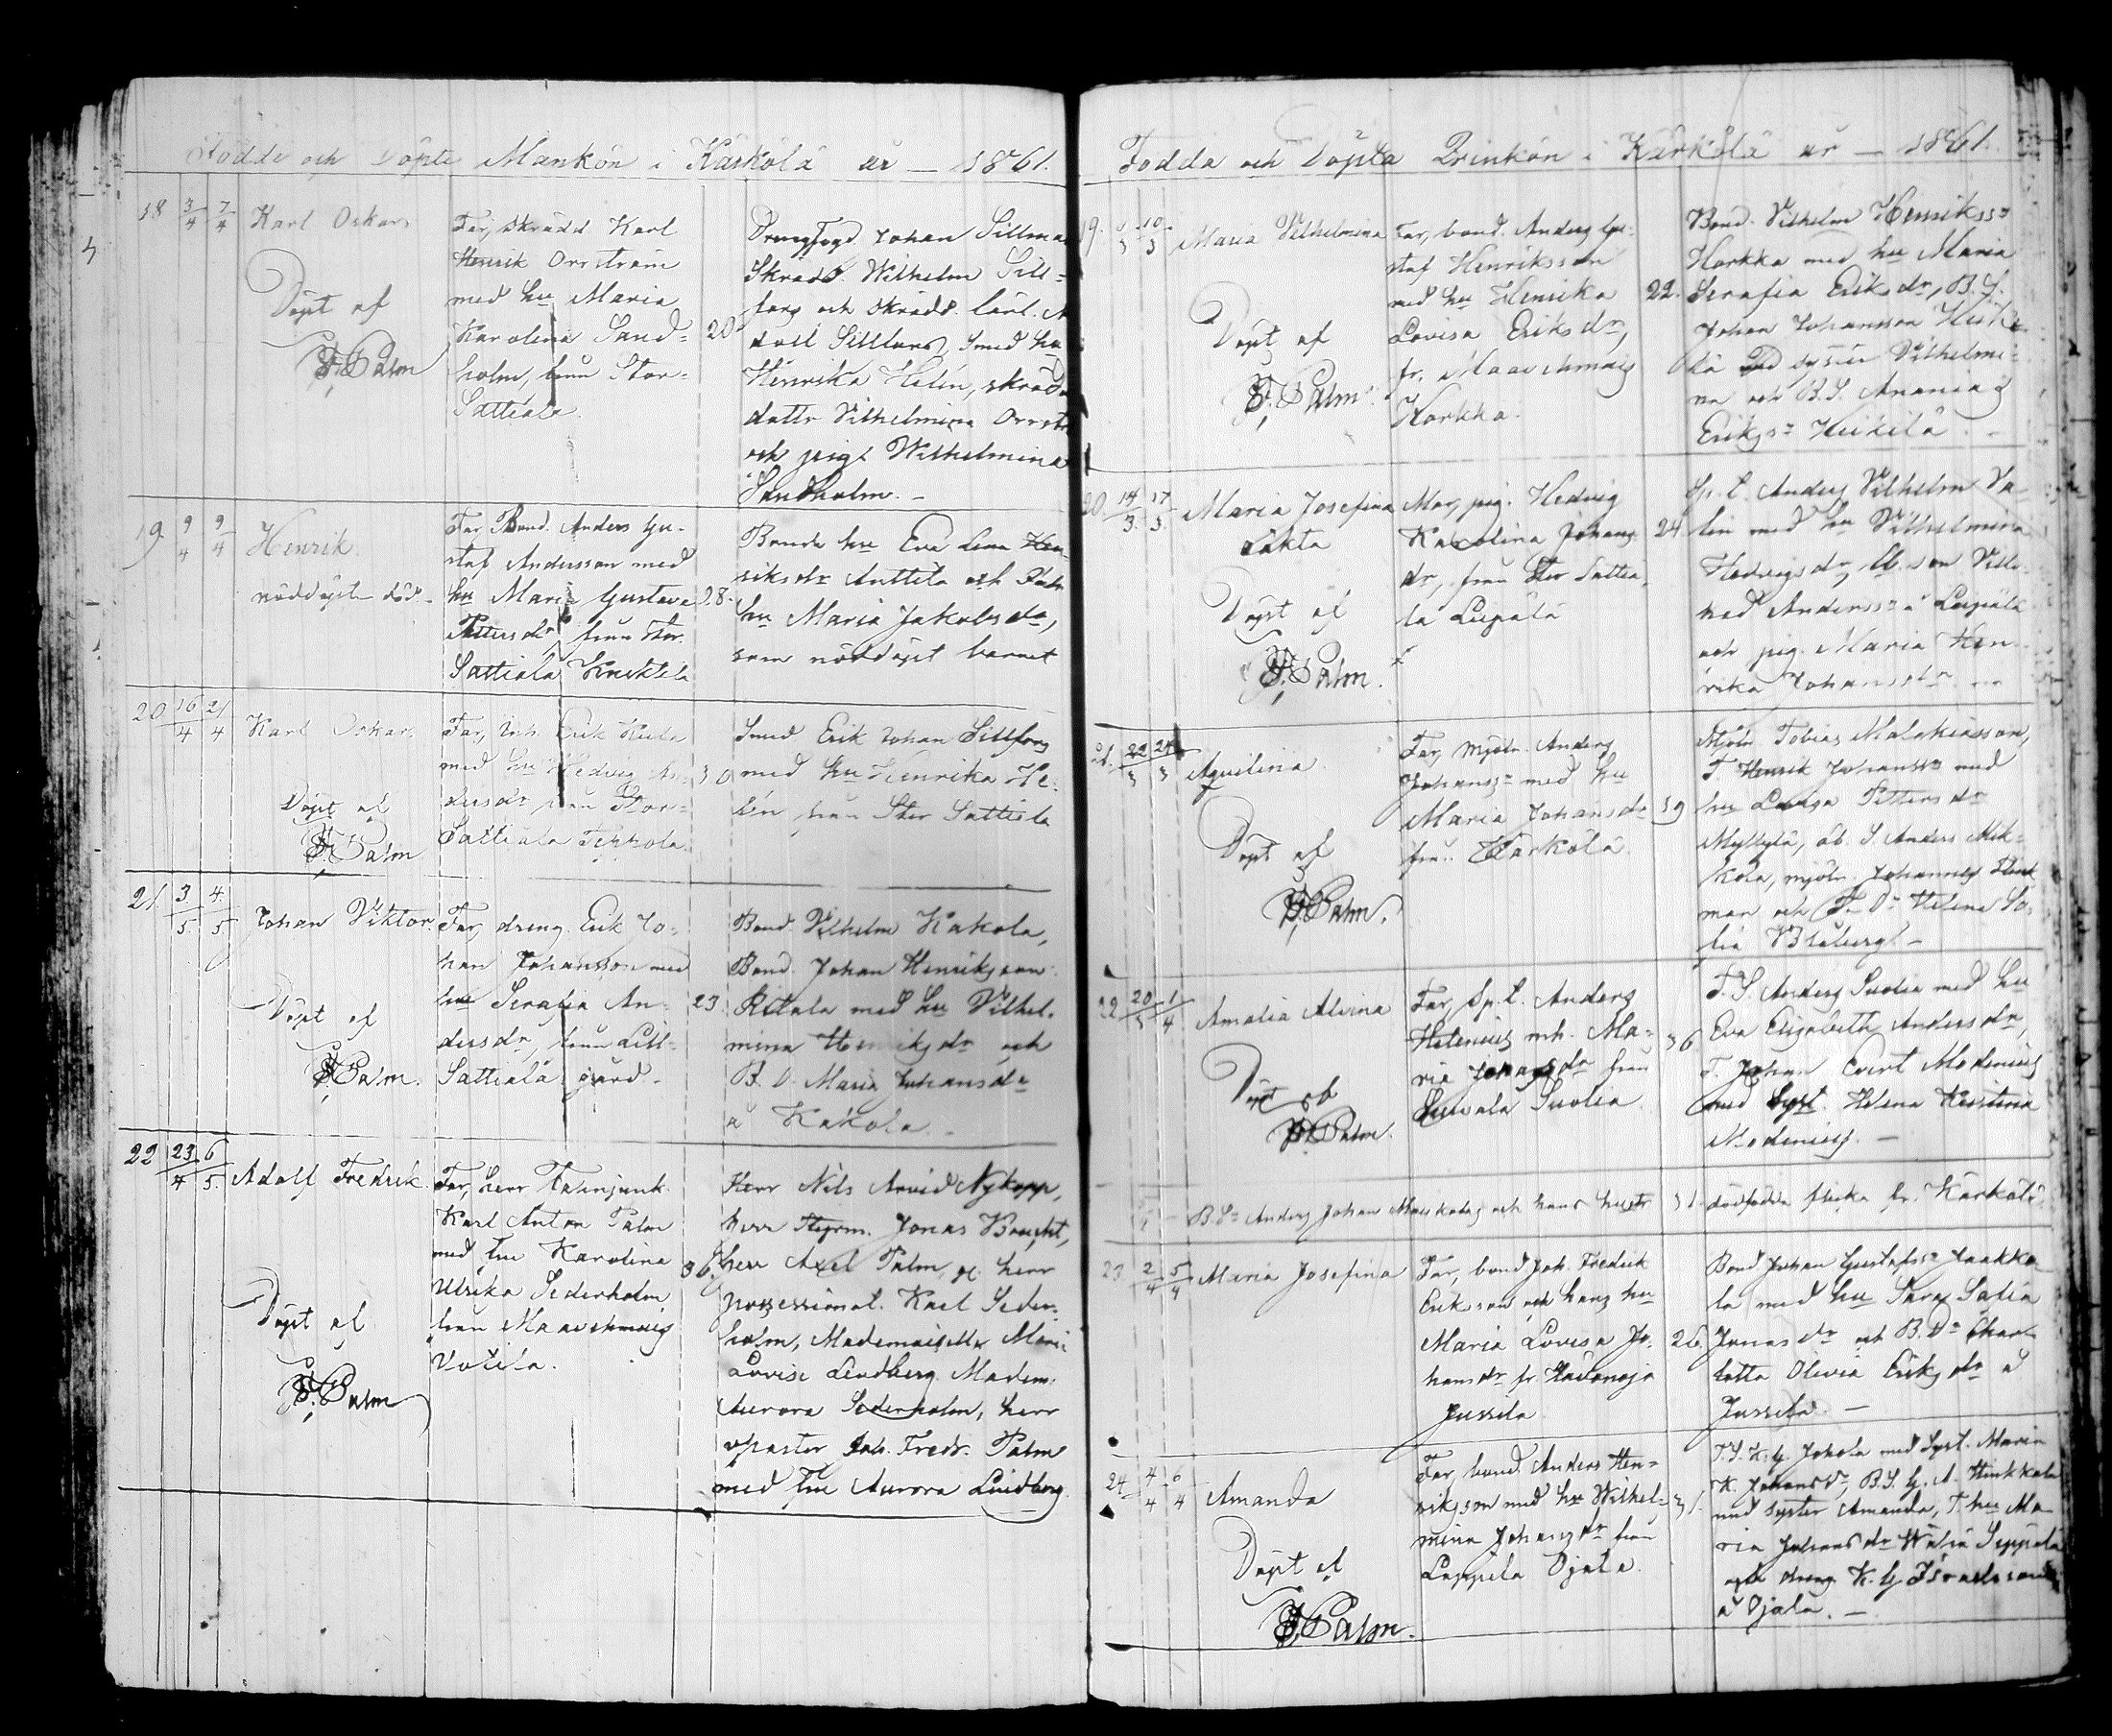 Födde och Döpte Mankön i Kärkölä år — 1861.
18 3/4 7/4 Karl Oskar
Döpt af
J. F. Palm
Far, skrädd Karl
Henrik Orrström
med hu Maria
Karolina Sand=
holm, från Stor=
Sattiala.
20
Johan Sillman
Skrädd. Wilhelm Sill=
fors och skrädd. Carl
Sillfors, smed hu
Henrika Helén, skrädd
dottr Vilhelmina Orrstr
och pig. Wilhelmina
Sandholm. —
19 9/4 9/4 Henrik
nöddöpt död.
Far, Bond. Anders Gu=
staf Andersson med
hu Maria Gustava
Pettersdr, från Stor
Sattiala Knektila
28.
Bonde hu Eva Lena Hen=
riksdr Anttila och
hu Maria Jakobsdr,
som nöddöpt barnet
20 16/4 21/4 Karl Oskar
Döpt af
J. F. Palm
Far, inh. Erik
med hu Hedvig An=
dersdr från Stor=
Sattiala
30
Smed Erik Johan Sillfors
med hu Henrika He=
lén från Stor Sattiala
21 3/5 4/5 Johan Viktor
Döpt af
J. F. Palm.
Far, dreng Erik Jo=
han Johansson med
hu Serafia An=
dersdr, från Lill=
Sattiala gård.
23.
Bond. Vilhelm Kakola,
Bond. Johan Henriksson
med hu Vilhel=
mina Henriksdr och
B. D. Maria Johansdr
å Kakola. —
22 23/4 6/5 Adolf Fredrik.
Döpt af
J. F. Palm
Far, herr Fanjunk.
Karl Anton Palm
med fru Karolina
Ulrika Sederholm
från Maavehmais
Votila.
36.
Herr Nils Arvid Nykopp,
herr Styrm. Jonas
herr Axel Palm, herr
possessionat. Karl Seder=
holm, Mademoiselle Maria
Lovise Lindberg Madem.
Aurora Sederholm, herr
pastor Joh. Fredr. Palm
med fru Aurora Lindberg.
Födda och Döpta Qvinkön i Kärkölä år — 1861.
19. 10/3 Maria Vilhelmina
Döpt af
J. F. Palm.
Far, bond. Anders Gu=
staf Henriksson
med hu Henrika
Lovisa Eriksdr,
fr. Maavehmais
Horkka.
22.
Bond. Vilhelm Henrikss
Horkka med hu Maria
Serafia Eriksdr, B. S.
Johan Johansson Heiki=
lä med syster Vilhelmi=
na och B. S. Ananias
Erikss Heikilä. —
20 14/3 17/3 Maria Josefina
oäkta
Döpt af
J. F. Palm.
Mor, pig. Hedvig
Karolina Johans
dr, från Stor Sattia=
la Lupala
24.
Sp. t. Anders Vilhelm Va=
lin med hu Vilhelmina
Hedvigsdr,
Anderss å Lupala
och pig. Maria Hen=
rika Johansdr. —
21. 22/3 24/3 Aqvilina.
Döpt af
J. F. Palm.
Far, mjöln. Anders
Johanss med hu
Maria Johansdr
från Kärkölä.
39
Mjöln Tobias Malakiasson,
T. Henrik Johanss med
hu Lovisa Pettersdr
Myllylä, åb. S Anders Mik=
kola, mjöln. Johannes
man och T. Dr Helena So=
fia Blåberg. —
22 20/3 1/4 Amalia Alvina
Döpt af
J. F. Palm.
Far, Sp. t. Anders
Helenius mh. Ma=
ria Johansdr från
Suolia
36
T. S. Anders Suolia med hu
Eva Elisabeth Andersdr,
T. Johan Evert Modenius
med Syst. Helena Kristina
Modenius. —
B. S. Anders Johan och hans hustr 31. dödfödda flicka fr. Kärkölä
23 2/4 5/4 Maria Josefina
Far, bond Joh. Fredrik
Eriksson och hans hu
Maria Lovisa Jo=
hansdr fr. Hävänoja
Jussila
26.
Bond Johan Gustafss Jaakko=
la med hu Sara Sofia
Jonasdr och B. Dr Char=
lotta Olivia Eriksdr å
Jussila. —
24 4/4 6/4 Amanda
Döpt af
J. F. Palm.
Far, bond. Anders Hen=
riksson med hu Wilhel=
mina Johansdr från
Lappila Ojala.
31.
T. S. K. G. Jokela med Syst. Maria
K. Johansdr, B. S. G. A. Hinkkala
med syster Amanda, T. hu Ma=
ria Johansdr Seppälä
och dreng K. G. Israelsson
å Ojala. —